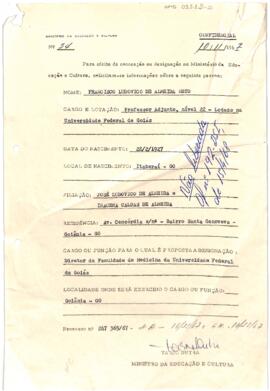 CONFIDENCIAL
MINISTÉRIO DA EDUCAÇÃO E CULTURA
Nº 24
Para efeito de nomeação ou designação no Ministério da Edu-
cação e Cultura, solicitam-se informações sobre a seguinte pessoa:
NOME: FRANCISCO LUDOVICO DE ALMEIDA NETO
CARGO E LOTAÇÃO: Professor Adjunto, nível 22 - Lotado na
Universidade Federal de Goiás
DATA DO NASCIMENTO: 1927
LOCAL DE NASCIMENTO: Itaberaí - GO
FILIAÇÃO: JOSÉ LUDOVICO DE ALMEIDA e
IRACEMA CALDAS DE ALMEIDA
RESIDÊNCIA: Av. Concórdia s/nº - Bairro Santa Genoveva -
Goiânia - GO
CARGO OU FUNÇÃO PARA O QUAL É PROPOSTA A DESIGNAÇÃO:
Diretor da Faculdade de Medicina da Universidade Federal
de Goiás
LOCALIDADE ONDE SERÁ EXERCIDO O CARGO OU FUNÇÃO:
Goiânia - GO
Processo nº
TARSO DUTRA
MINISTRO DA EDUCAÇÃO E CULTURA